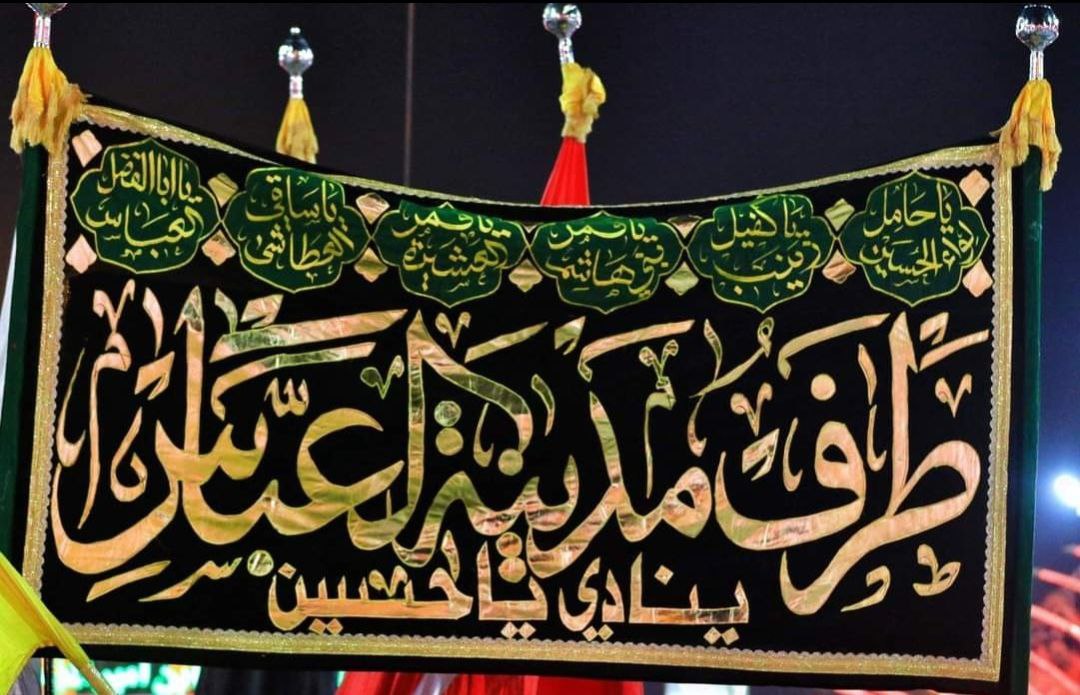 يا حامل لواء الحسين
يا كفيل زينب
يا قمر بني هاشم
يا قمر العشيرة
يا ساقي العطاشى
يا ابا الفضل العباس
طرف مدينة العباس
ينادي يا حسين